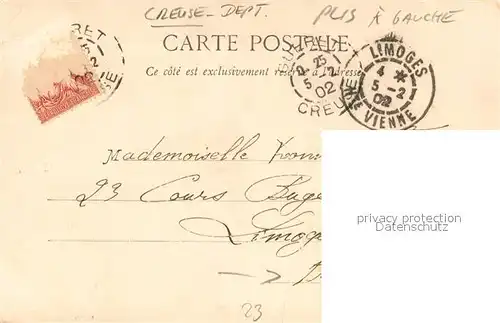 CREUSE - DEPT. PLIS À GAUCHE
CARTE POSTALE
Ce côté est exclusivement réservé à l'adresse
RET
5 2
02
GUÉRET
25
5 -2
02
CREUSE
LIMOGES
4 *
5 -2
02
HTE VIENNE
Mademoiselle
23 Cours
privacy protection
Datenschutz
23